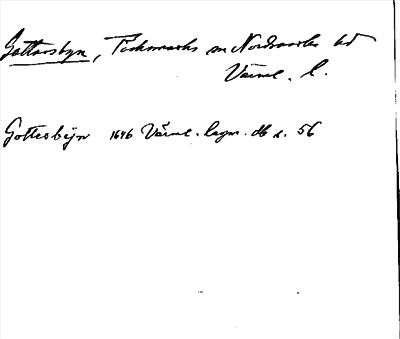 Gottarsbyn, Töcksmarks sn Nordmarks hd
Värml. l.
Gottersbÿn 1646 Värml. lagm. db s. 56